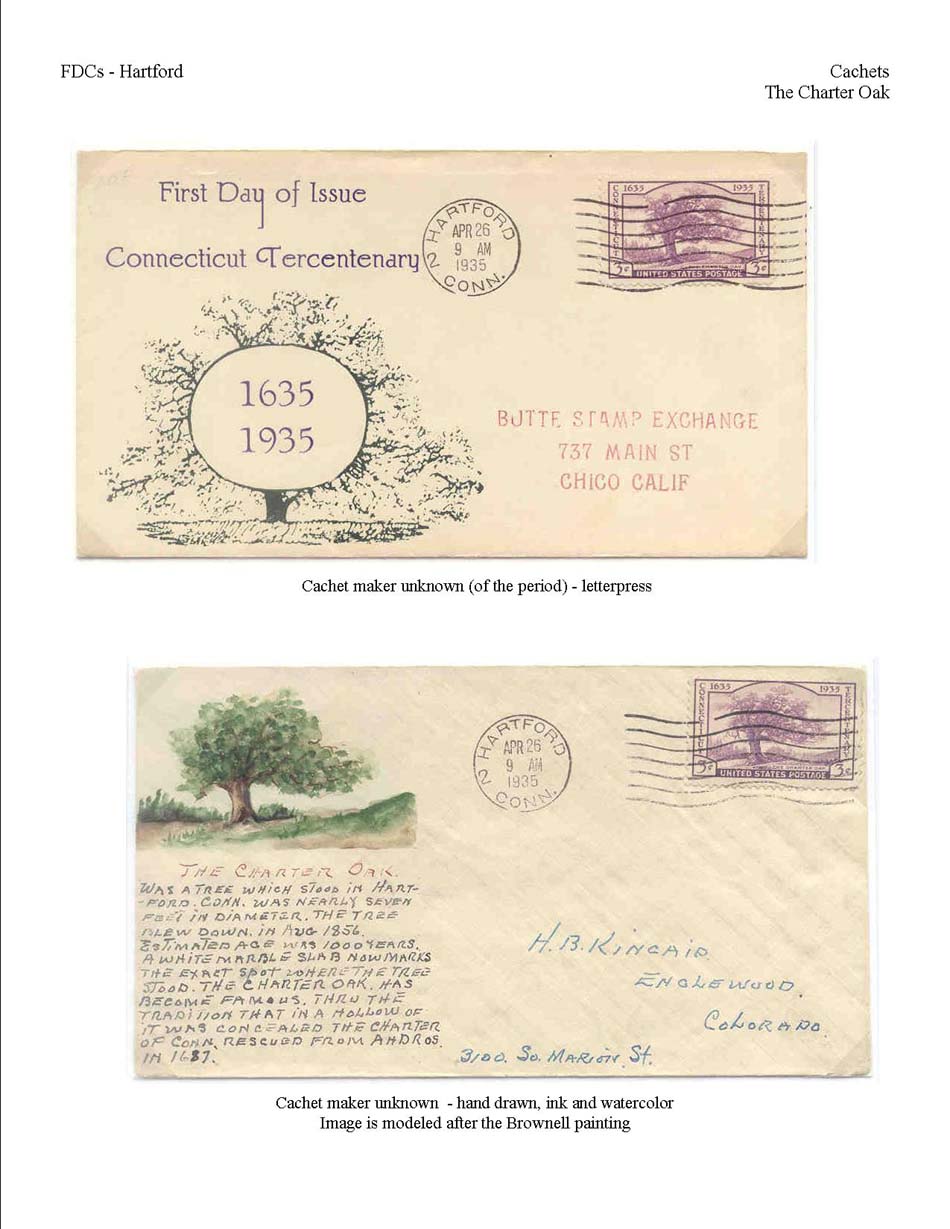 FDCs - Hartford
Cachets
The Charter Oak
First Day of Issue
Connecticut Tercentenary
1635
1935
HARTFORD
APR 26
9 AM
1935
2 CONN.
1635 1935
CONNECTICUT
TERCENTENARY
THE CHARTER OAK
3¢ UNITED STATES POSTAGE 3¢
BUTTE STAMP EXCHANGE
737 MAIN ST
CHICO CALIF
Cachet maker unknown (of the period) - letterpress
HARTFORD
APR 26
9 AM
1935
2 CONN.
1635 1935
CONNECTICUT
TERCENTENARY
THE CHARTER OAK
3¢ UNITED STATES POSTAGE 3¢
THE CHARTER OAK.
WAS A TREE WHICH STOOD IN HART-
-FORD. CONN. WAS NEARLY SEVEN
FEET IN DIAMETER. THE TREE
BLEW DOWN. IN AUG 1856.
ESTIMATED AGE WAS 1000 YEARS.
A WHITE MARBLE SLAB NOW MARKS
THE EXACT SPOT WHERE THE TREE
STOOD. THE CHARTER OAK. HAS
BECOME FAMOUS. THRU THE
TRADITION THAT IN A HOLLOW OF
IT WAS CONCEALED THE CHARTER
OF CONN. RESCUED FROM ANDROS.
IN 1687.
H. B. KINCAID.
ENGLEWOOD.
COLORADO.
3100. SO. MARION. ST.
Cachet maker unknown - hand drawn, ink and watercolor
Image is modeled after the Brownell painting